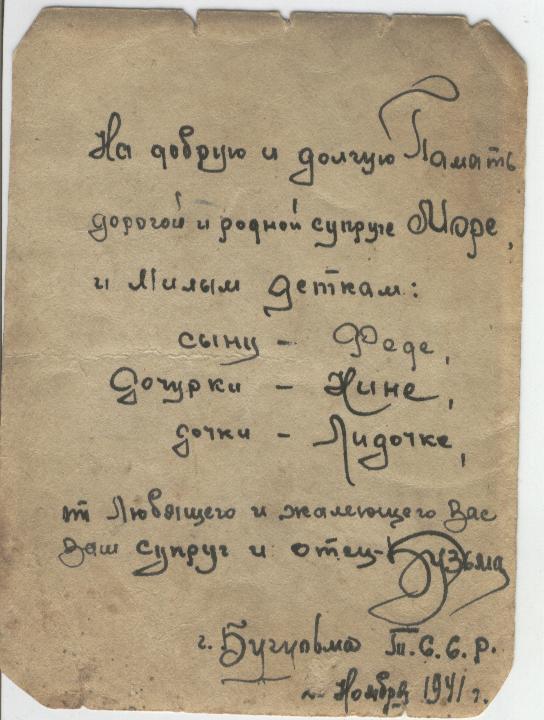 На добрую и долгую Память
дорогой и родной супруге Мэре,
и Милым деткам:
сыну - Феде,
Дочурки - Нине,
дочки - Лидочке,
от Любящего и жалеющего Вас
Ваш супруг и отец - Кузьма
г. Бугульма Т.С.С.Р.
Ноябрь 1941 г.